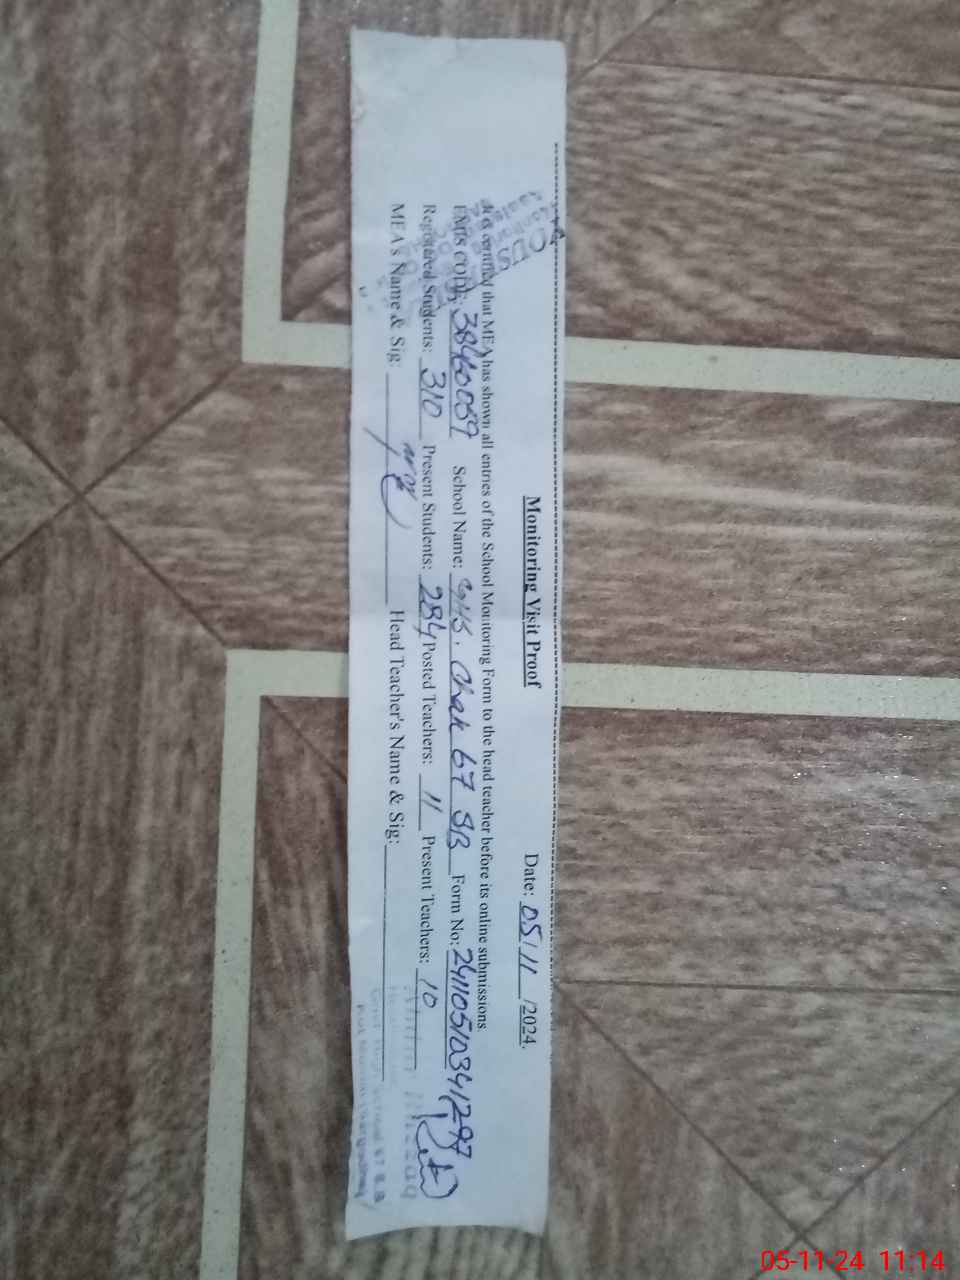 Monitoring Visit Proof Date: 05/11/2024.
It is certified that MEA has shown all entries of the School Monitoring Form to the head teacher before its online submissions.
EMIS CODE: 38460059 School Name: GHS. Chak 67 SB Form No: 241105103417297
Registered Students: 310 Present Students: 284 Posted Teachers: 11 Present Teachers: 10
MEA's Name & Sig: Head Teacher's Name & Sig:
05-11-24 11:14